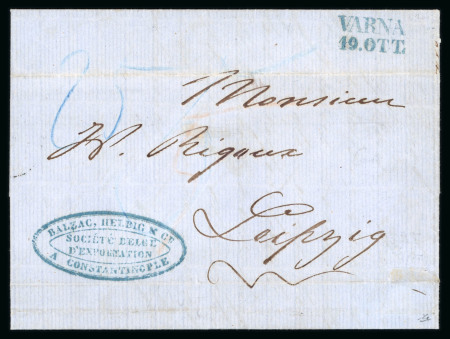 VARNA
19.OTT.
25
Monsieur
W. Rigaux
Leipzig
BALZAC, HELBIG & CE
SOCIÉTÉ BELGE
D'EXPORTATION
A CONSTANTINOPLE